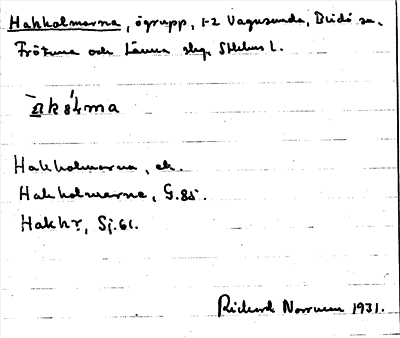 Hakholmarna, ögrupp, 1-2 Vagnsunda, Blidö sn.
Frötuna och Länna skg. Sthlms l.
Hakholmarna, ek.
Hakholmarne, G.85.
Hakhr, Sj.61.
Richard Norrman 1931.